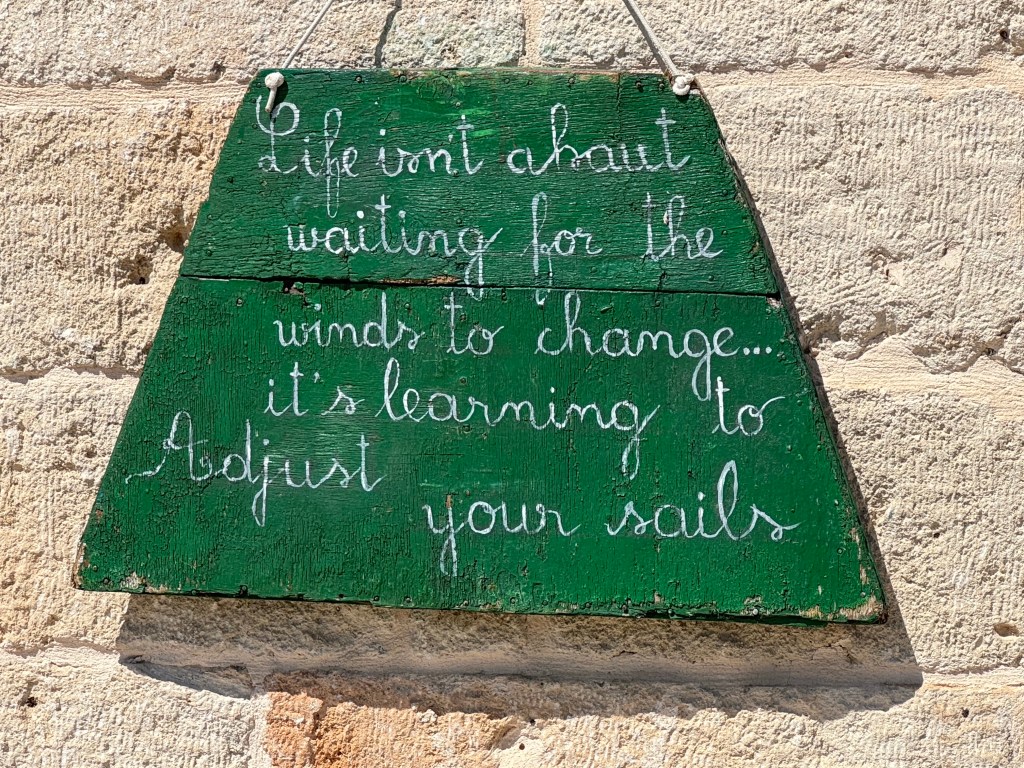 Life isn't about
waiting for the
winds to change...
it's learning to
Adjust your sails